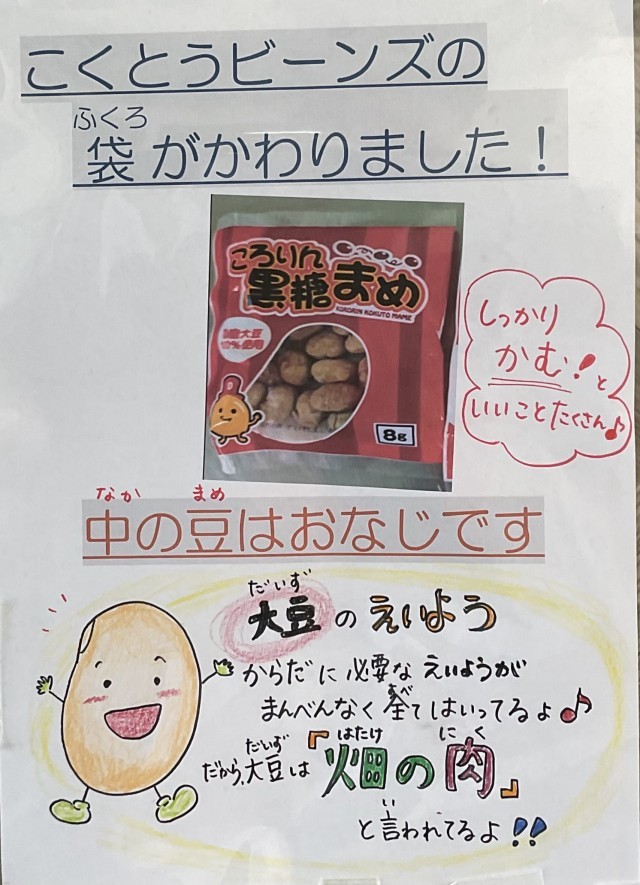 こくとうビーンズの
ふくろ
袋がかわりました！
ころりん
黒糖まめ
KORORIN KOKUTO MAME
8g
しっかり
かむ！と
いいことたくさん♪
なか まめ
中の豆はおなじです
だいず
大豆のえいよう
からだに必要なえいようが
すべ
まんべんなく全てはいってるよ♪
だいず はたけ にく
だから、大豆は『畑の肉』
い
と言われてるよ!!